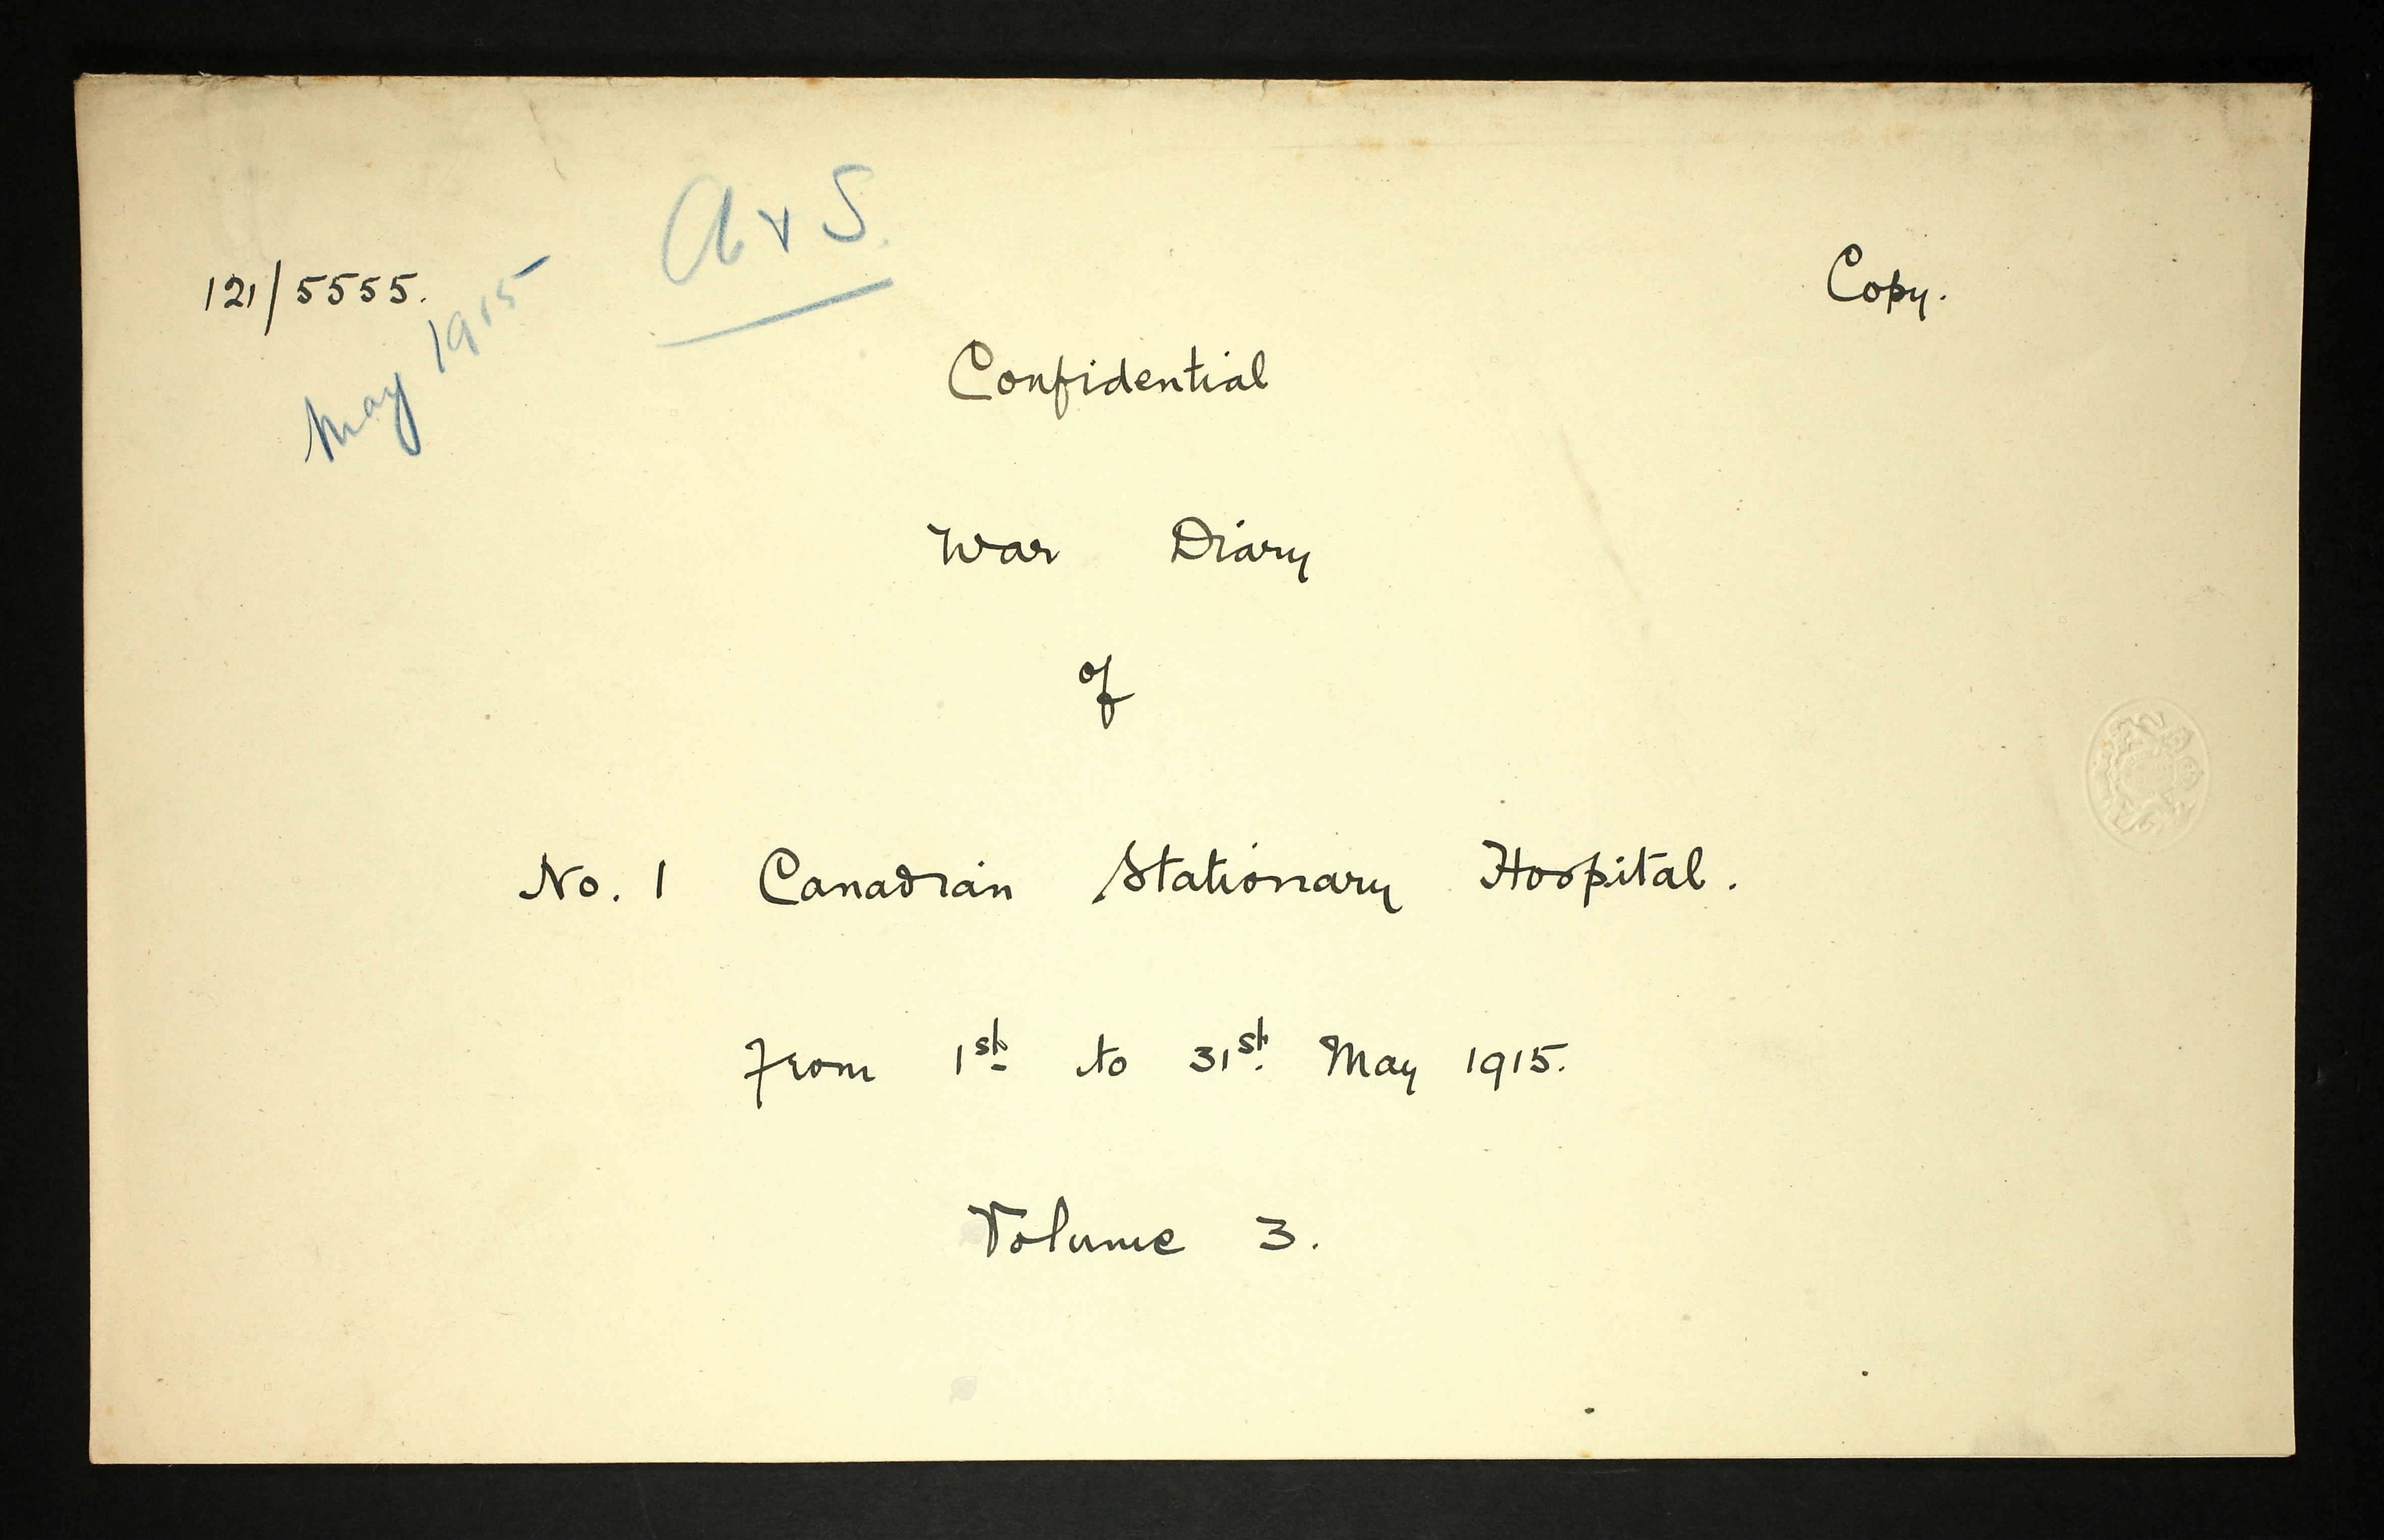 A & S.
121/5555.
Copy.
May 1915
Confidential
War Diary
of
No. 1 Canadian Stationary Hospital.
From 1st to 31st May 1915.
Volume 3.